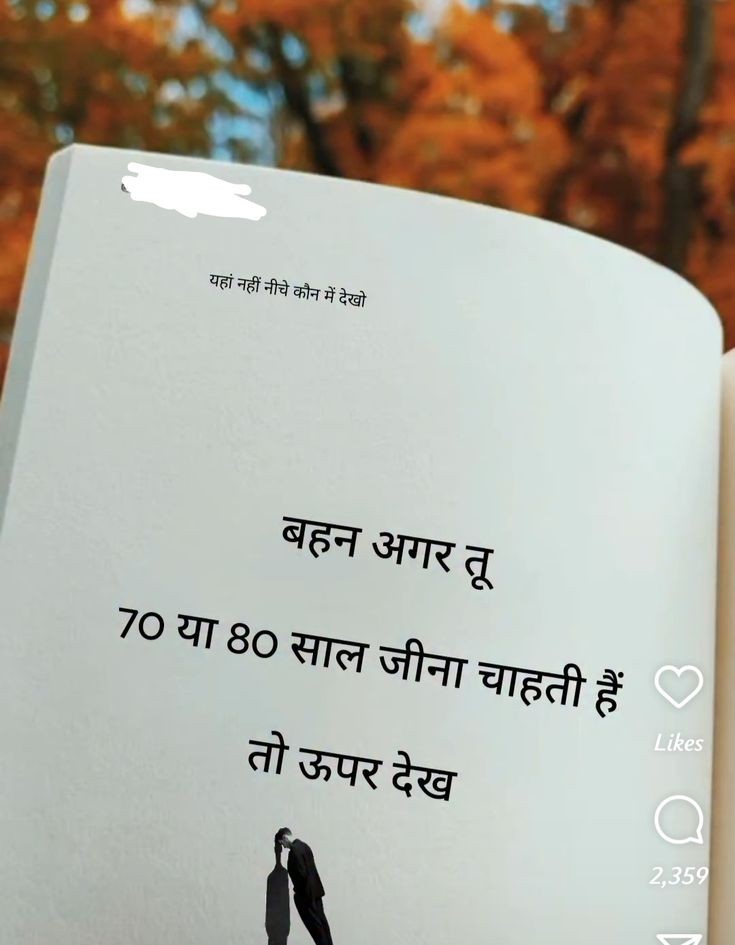 यहां नहीं नीचे कौन में देखो
बहन अगर तू
70 या 80 साल जीना चाहती हैं
तो ऊपर देख
Likes
2,359